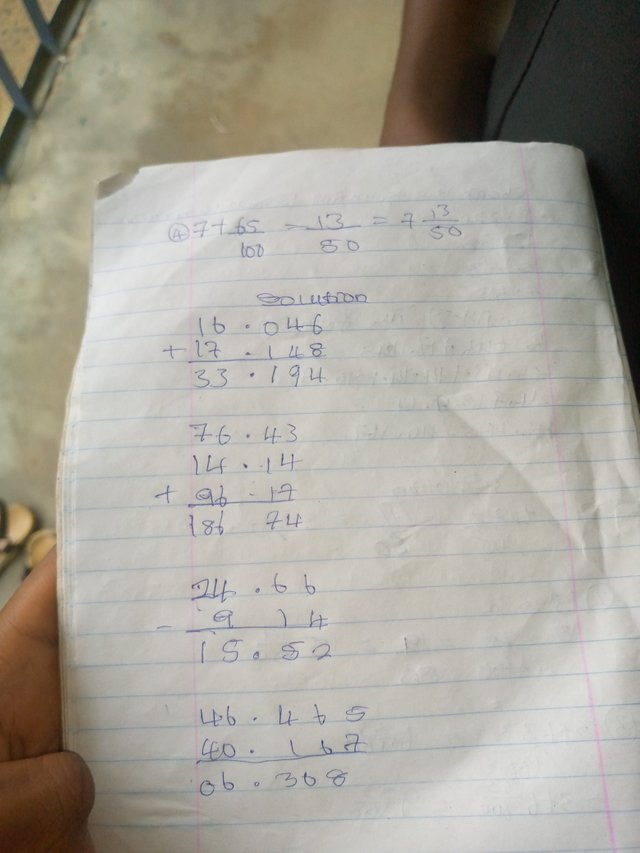 (A) 7 + 65/100 = 13/50 = 7 13/50
Solution
16.046
+ 17.148
33.194
76.43
14.14
+ 96.17
186 74
24.66
- 9 14
15.52
46.465
40.167
06.308